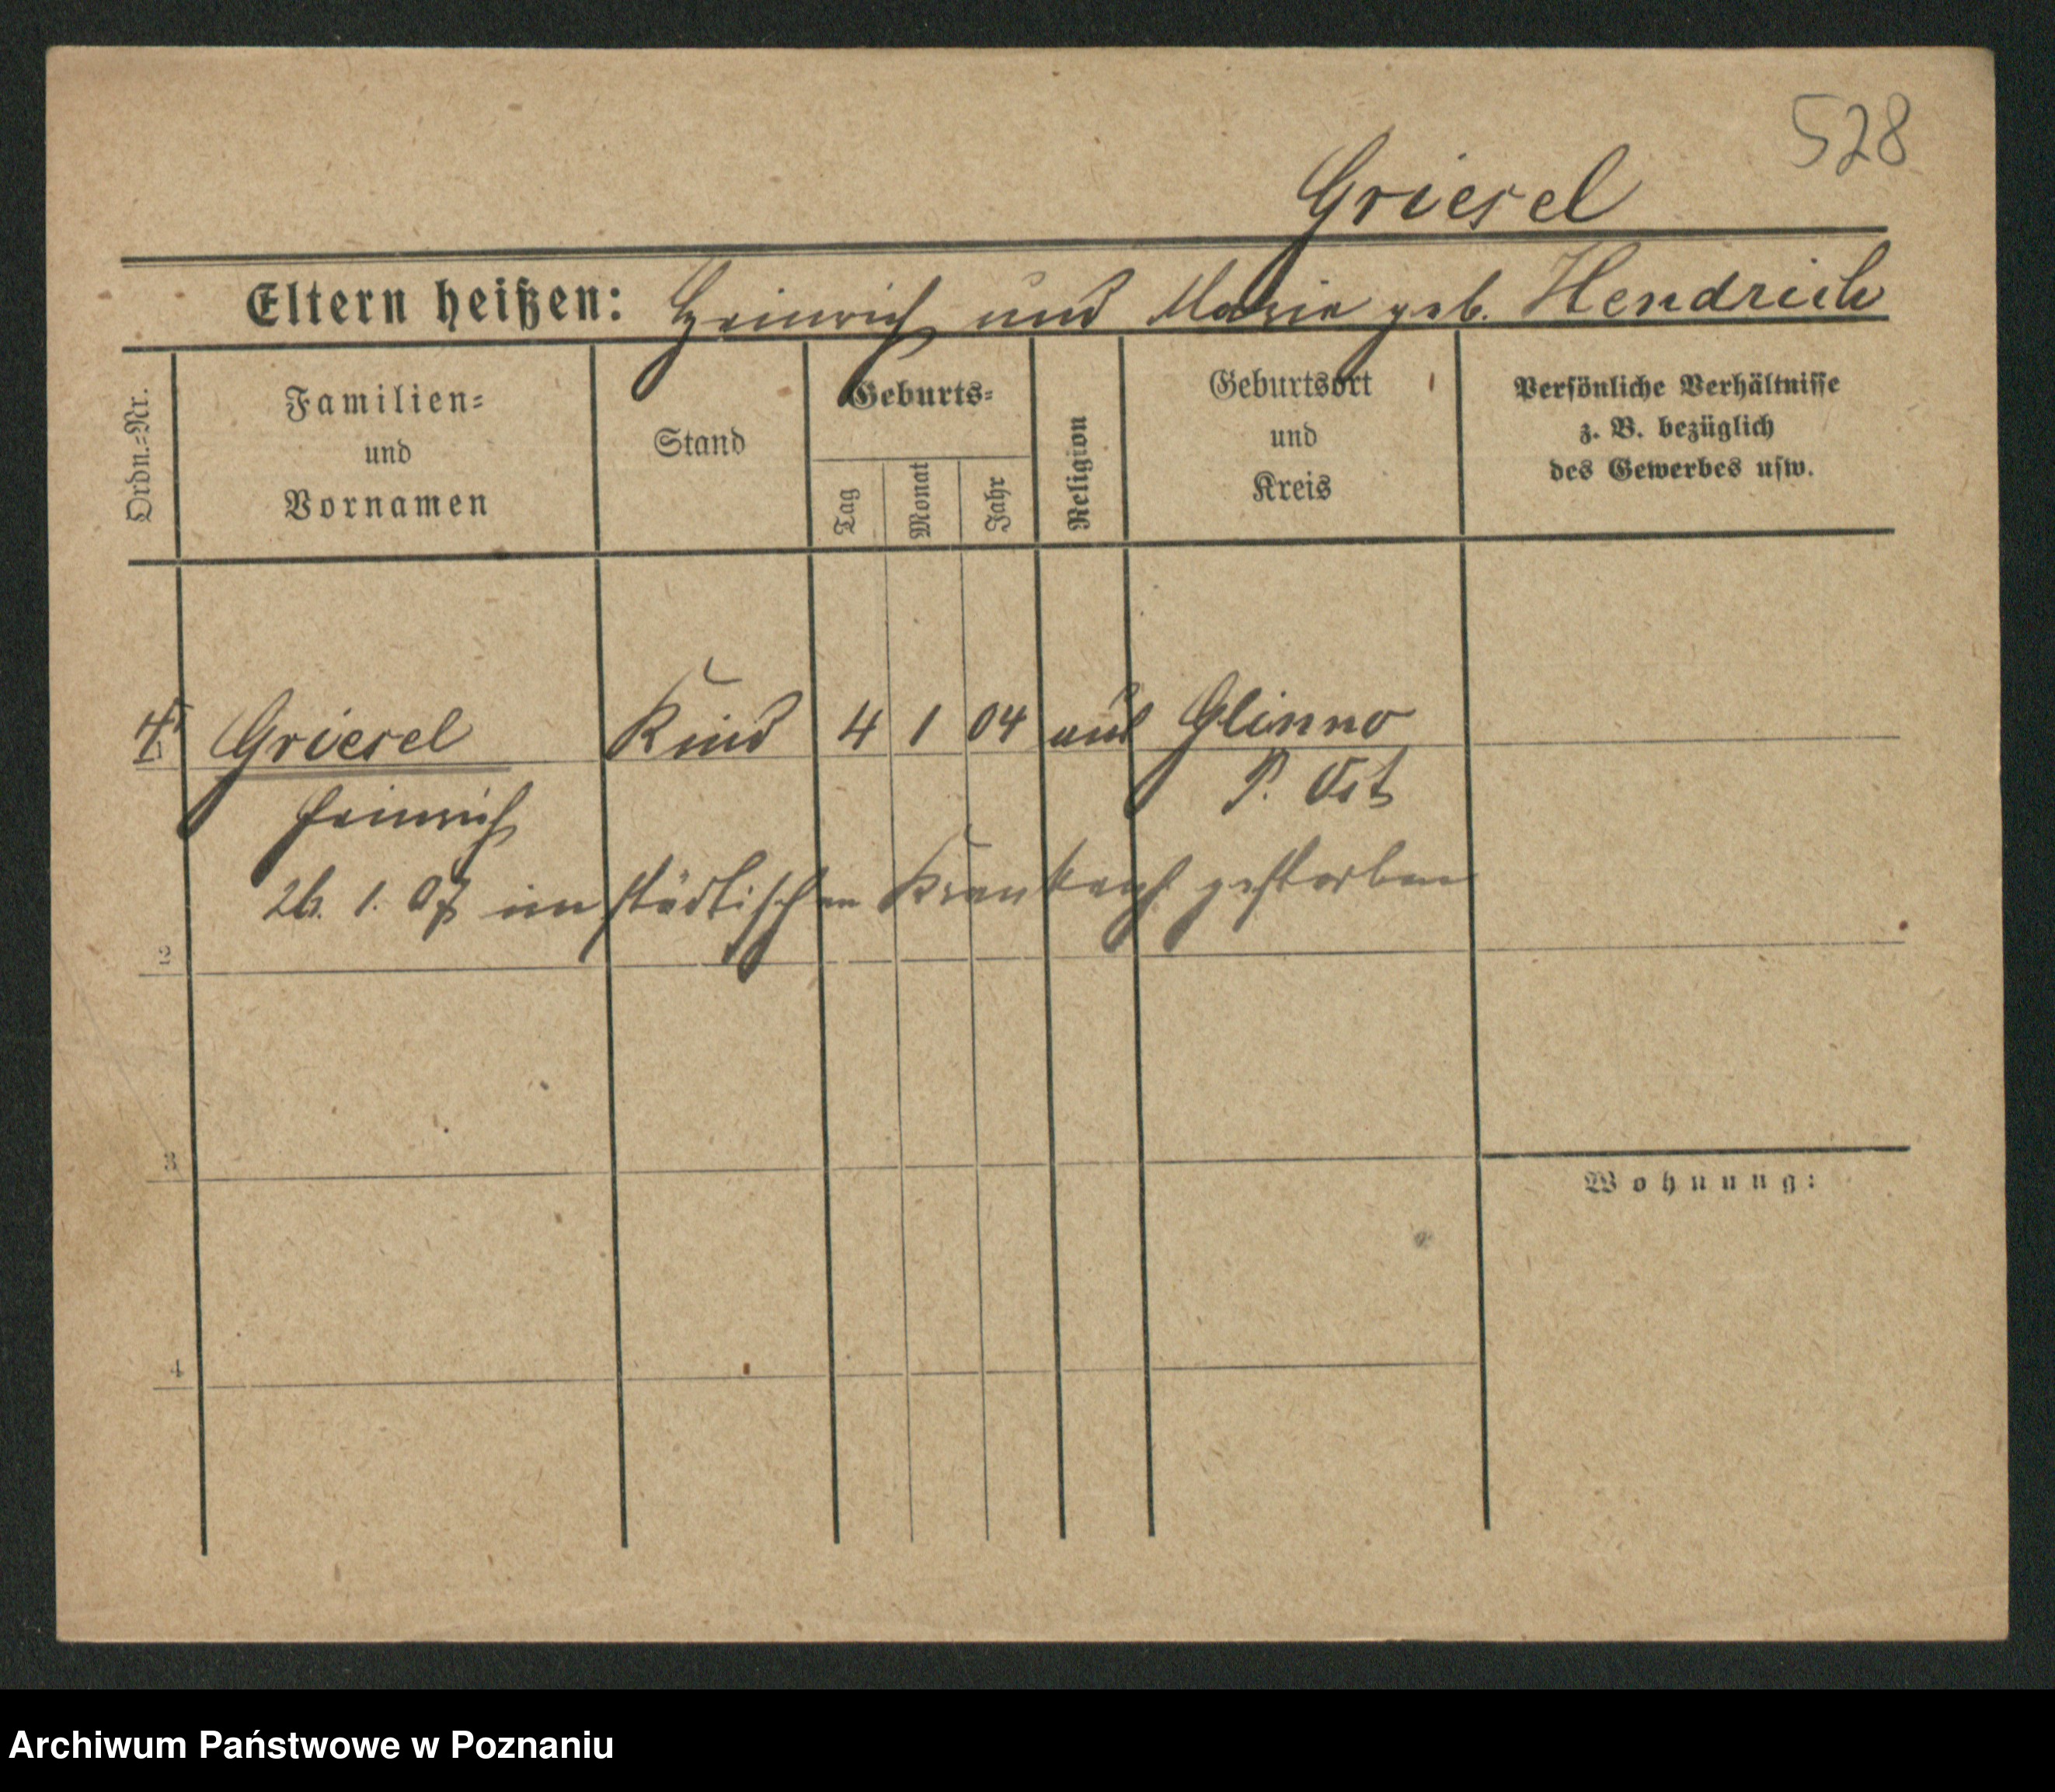 528
Griesel
Eltern heißen: Heinrich und Maria geb. Hendrich
Ordn.=Nr.
Familien=
und
Vornamen
Stand
Geburts=
Tag
Monat
Jahr
Religion
Geburtsort
und
Kreis
Persönliche Verhältnisse
z. B. bezüglich
des Gewerbes usw.
Griesel Kind 4 1 04 Glinno
Heinrich P. Ost
26. 1. 07 im städtischen gestorben
2
3
Wohnung:
4
Archiwum Państwowe w Poznaniu